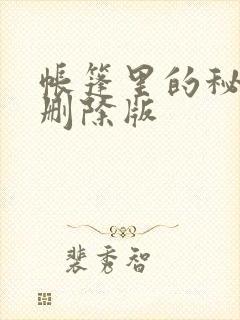 帐篷里的秘
删除版
裴秀智